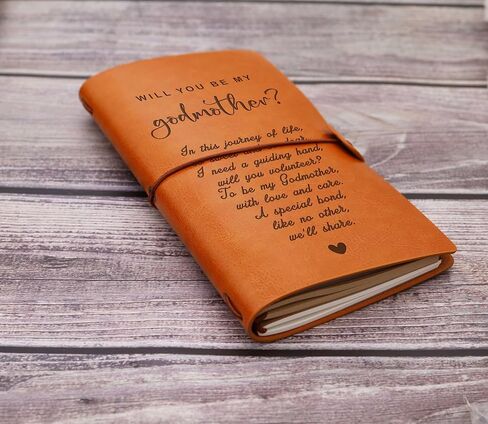 WILL YOU BE MY
godmother?
In this journey of life,
dear,
I need a guiding hand,
will you volunteer?
To be my Godmother,
with love and care.
A special bond,
like no other,
we'll share.